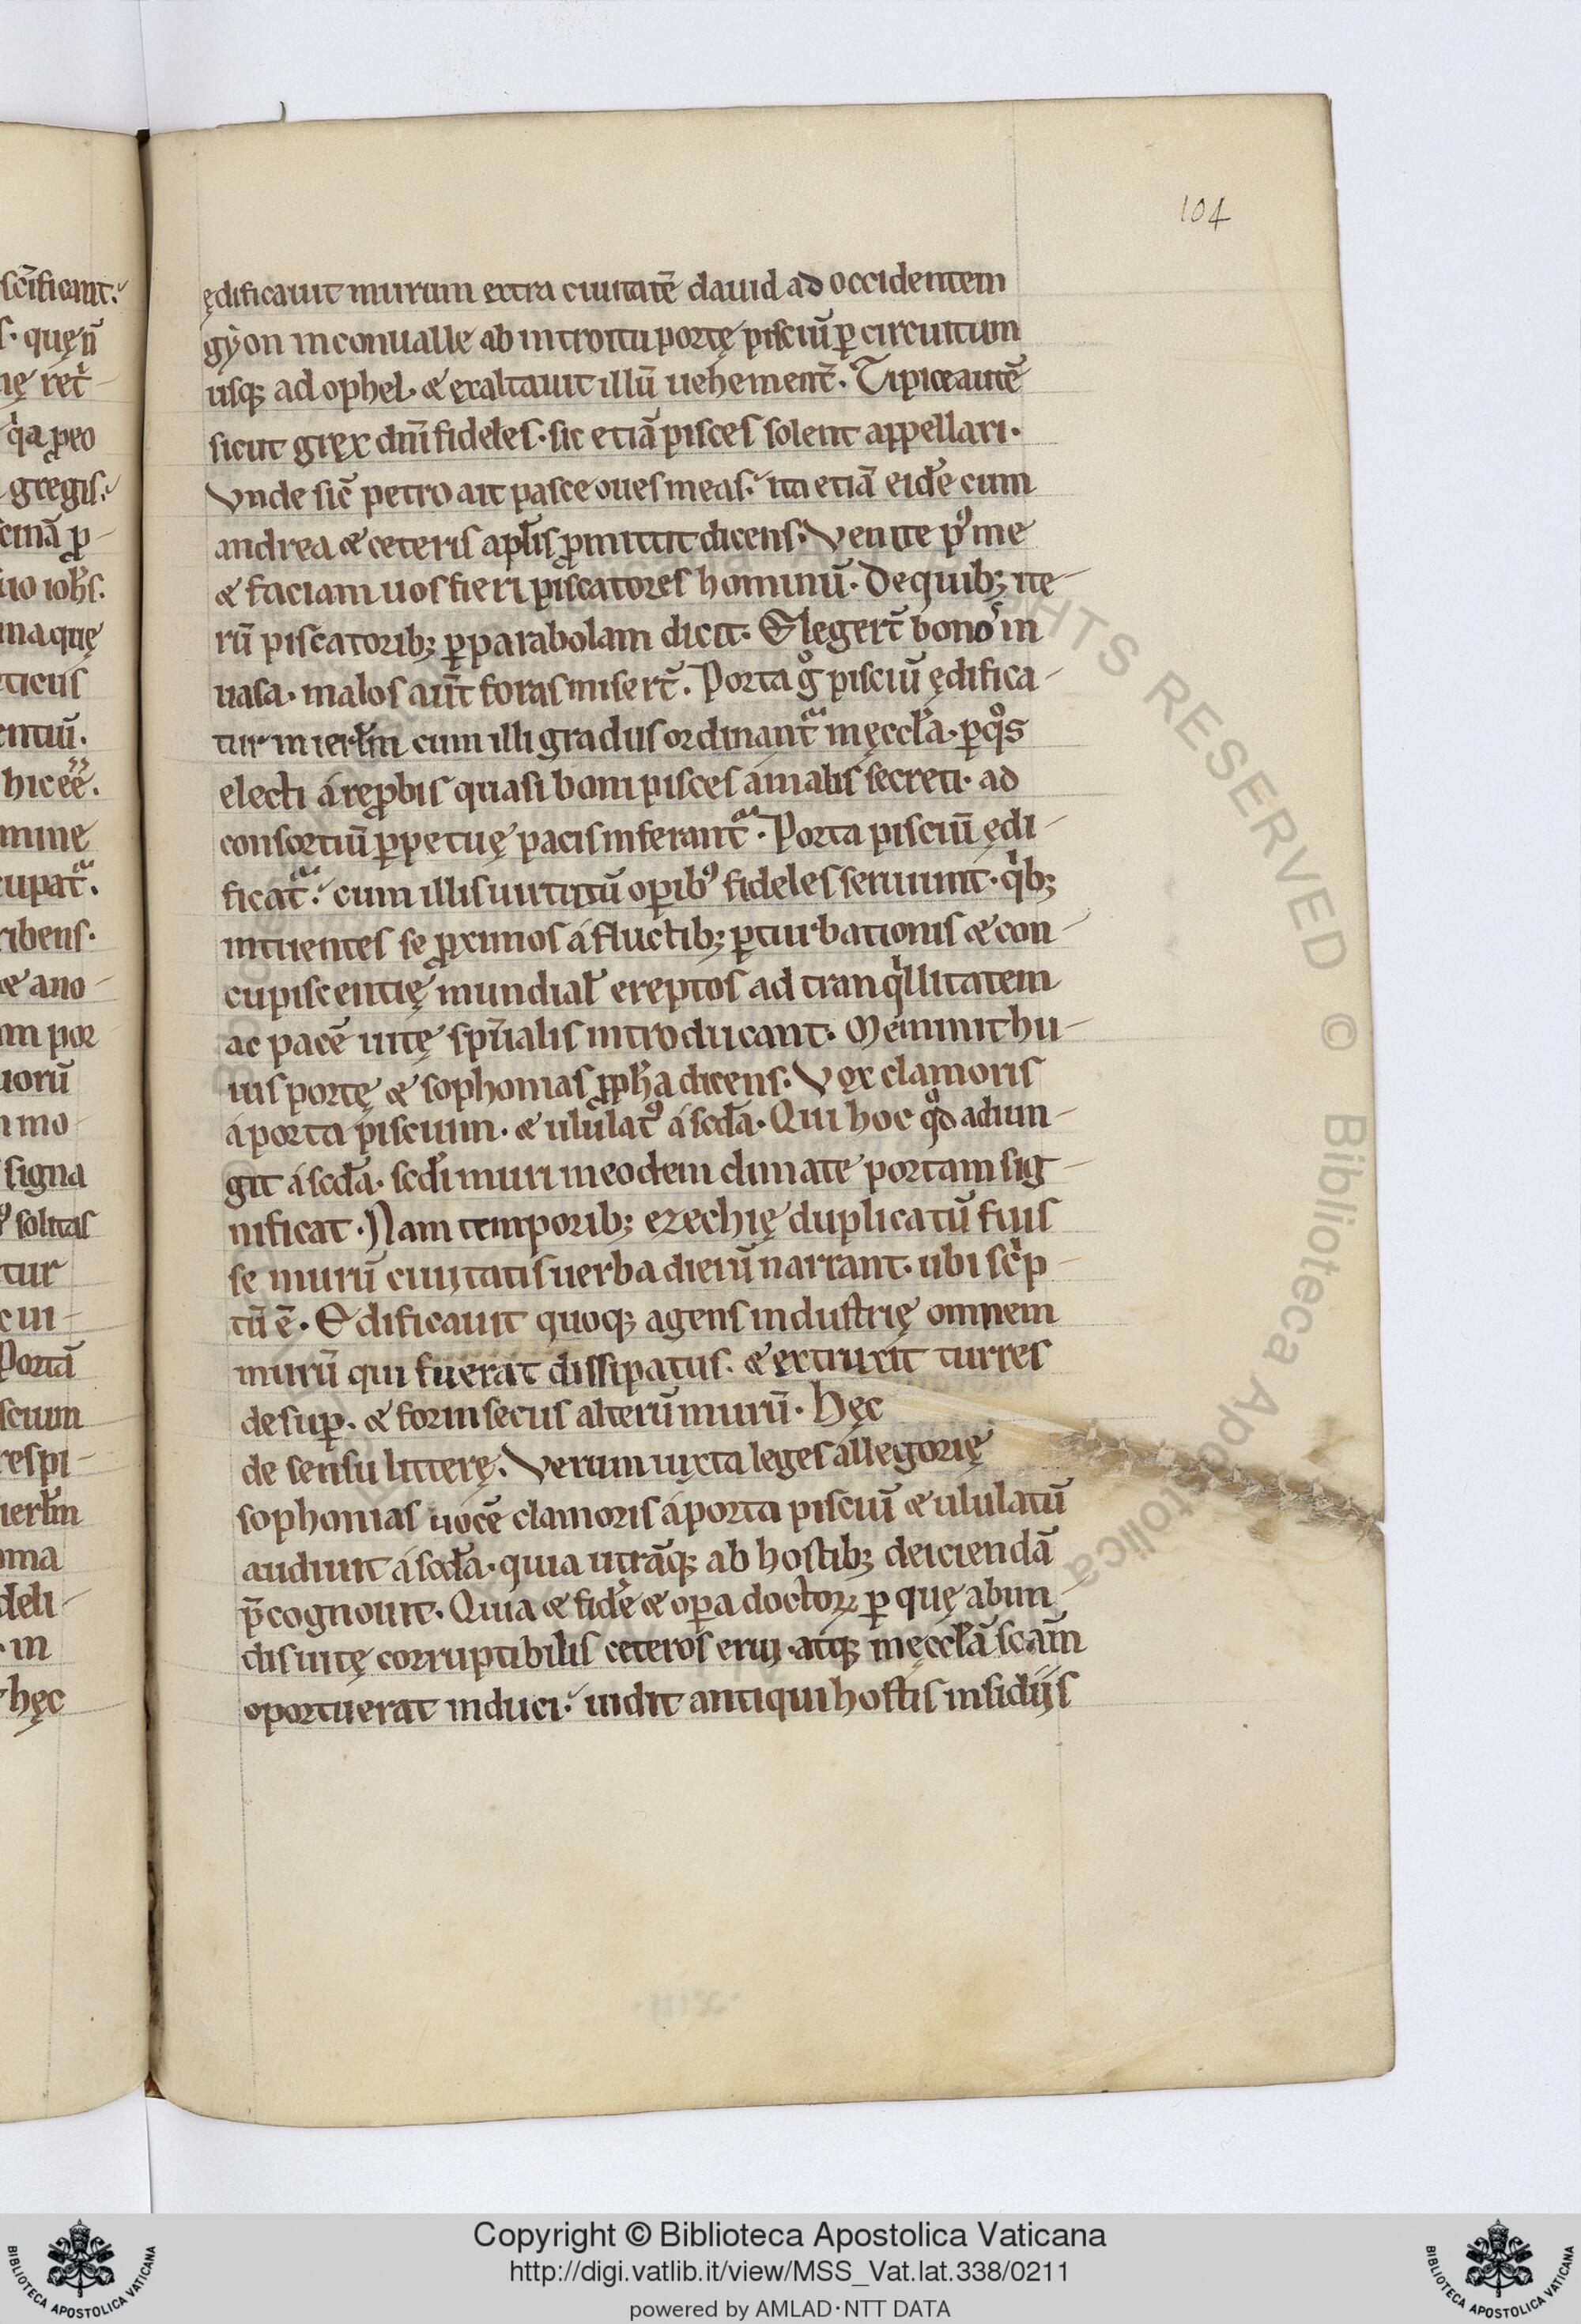 104
ędificauit murum extra ciuitatē dauid ad occidentem
gyon in conualle ab introitu portę pisciū ꝑ circuitum
usq; ad ophel· & exaltauit illū uehement̄. Tipice autē
sicut grex dn̄i fideles· sic etiā pisces solent appellari.
Vnde sic̄ petro ait pasce oues meas·' ita etiā eidē cum
andrea & ceteris apl̄is ꝓmittit dicens· Venite pꝰ me
& faciam uos fieri piscatores hominū· De quib; ite-
rū piscatorib; ꝑ parabolam dicit· Elegert̄ bonos in
uasa· malos aut̄ foras misert̄. Porta gͦ pisciū ędifica-
tur in ierl̄m cum illi gradus ordinant᷑ in ęccl̄a· ꝑ qͦs
electi á reꝓbis quasi boni pisces á malis secreti· ad
consortiū ꝑpetuę pacis inferant᷑. Porta pisciū ędi-
ficat᷑·' cum illis uirtutū oꝑibꝰ fideles seruiunt· qͥb;
intuentes se ꝓximos á fluctib; ꝑturbationis & con-
cupiscentię mundial̄ ereptos ad tranqͥllitatem
ac pacē uitę sp̄ualis introducant. Meminit hu-
ius portę & sophonias ꝓph̄a dicens· Vox clamoris
á porta piscium· & ululatꝰ á sc̄da. Qui hoc qͦd adiun-
git á sc̄da· sc̄di muri in eodem climate portam sig-
nificat· Nam temporib; ezechię duplicatū fuis
se murū ciuitatis uerba dierū narrant· ubi scͥp-
tū ē· Edificauit quoq; agens industrię omnem
murū qui fuerat dissipatus· & extruxit turres
desuꝑ· & forinsecus alterū murū· Hęc
de sensu litterę. Verum iuxta leges allegorię
sophonias uocē clamoris á porta pisciū & ululatū
audiuit á sc̄da· quia utrāq; ab hostib; deiciendā
p̄cognouit. Quia & fidē & oꝑa doctoꝝ ꝑ quę ab un-
dis uitę corruptibilis ceteros erui atq; in ęccl̄ā sc̄am
oportuerat induci·' uidit antiqui hostis insidiis
Copyright © Biblioteca Apostolica Vaticana
http://digi.vatlib.it/view/MSS_Vat.lat.338/0211
powered by AMLAD·NTT DATA